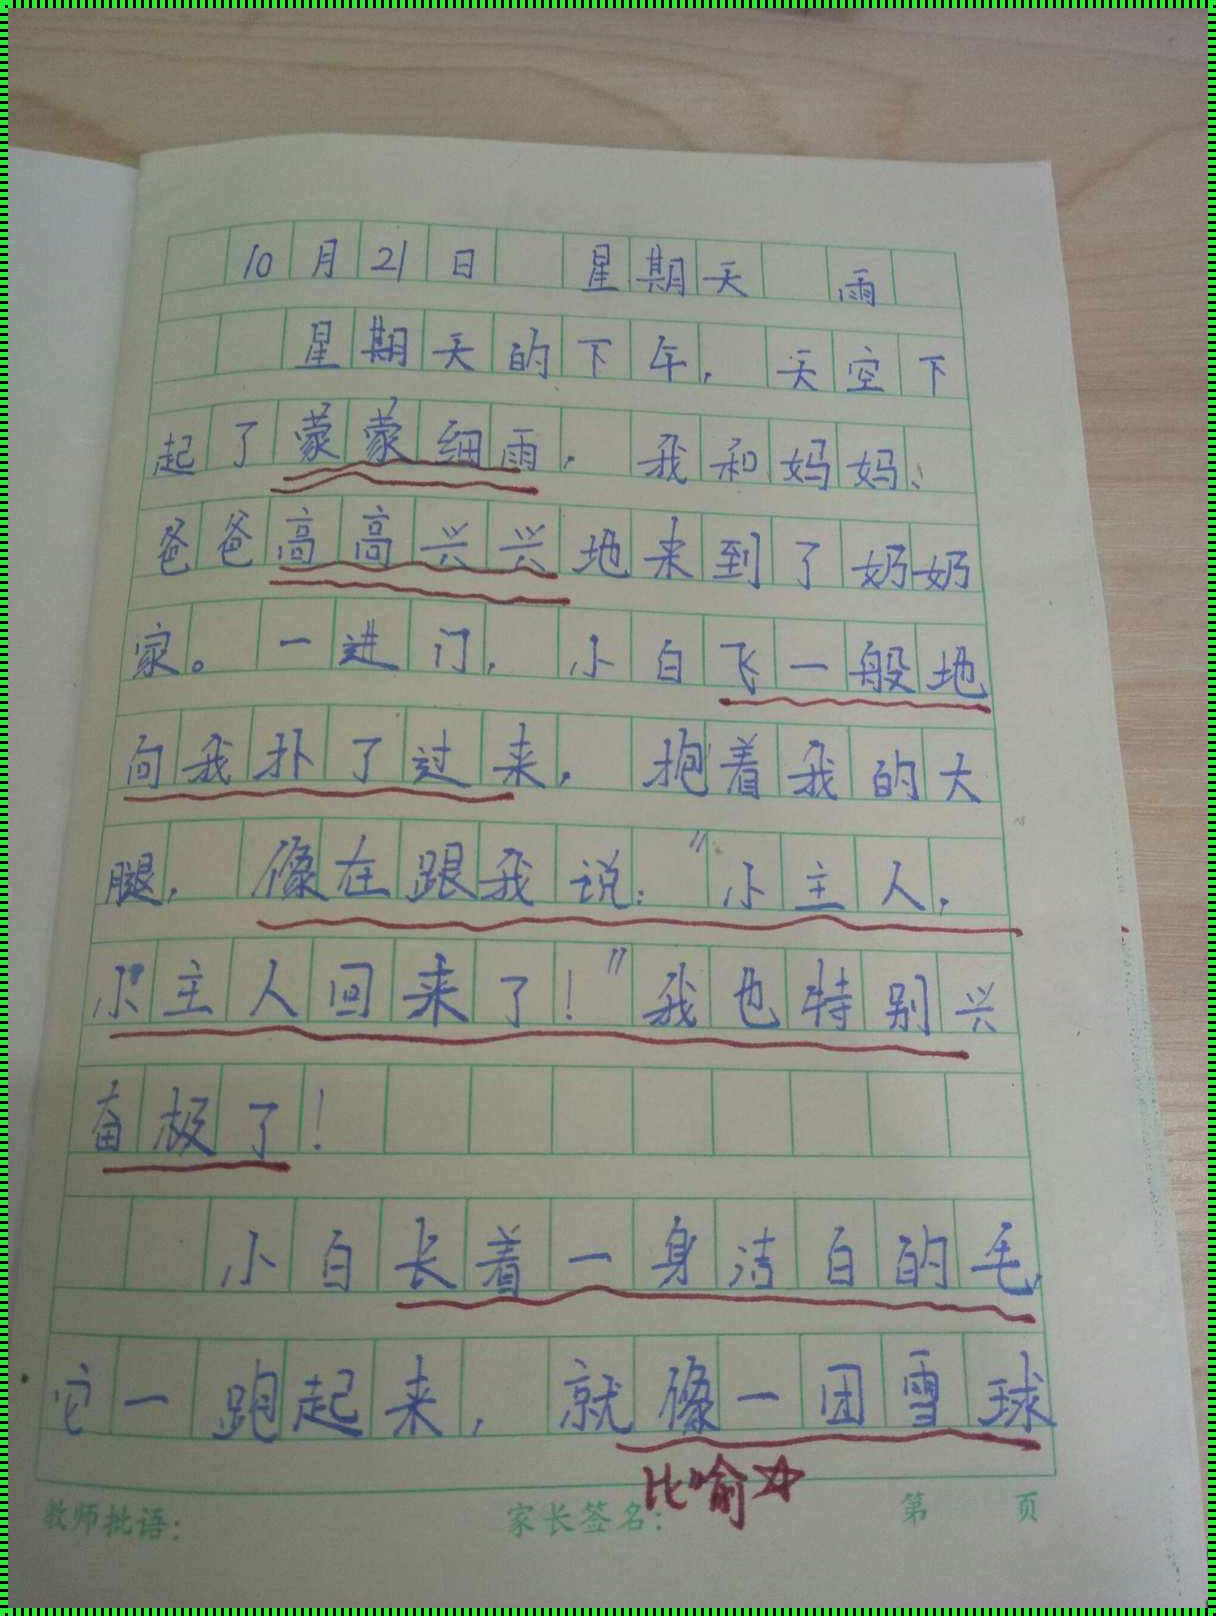 10月21日 星期天 雨
星期天的下午，天空下
起了蒙蒙细雨，我和妈妈、
爸爸高高兴兴地来到了奶奶
家。一进门，小白飞一般地
向我扑了过来，抱着我的大
腿，像在跟我说：“小主人，
小主人回来了！”我也特别兴
奋极了！
小白长着一身洁白的毛，
它一跑起来，就像一团雪球
比喻☆
教师批语： 家长签名： 第 页